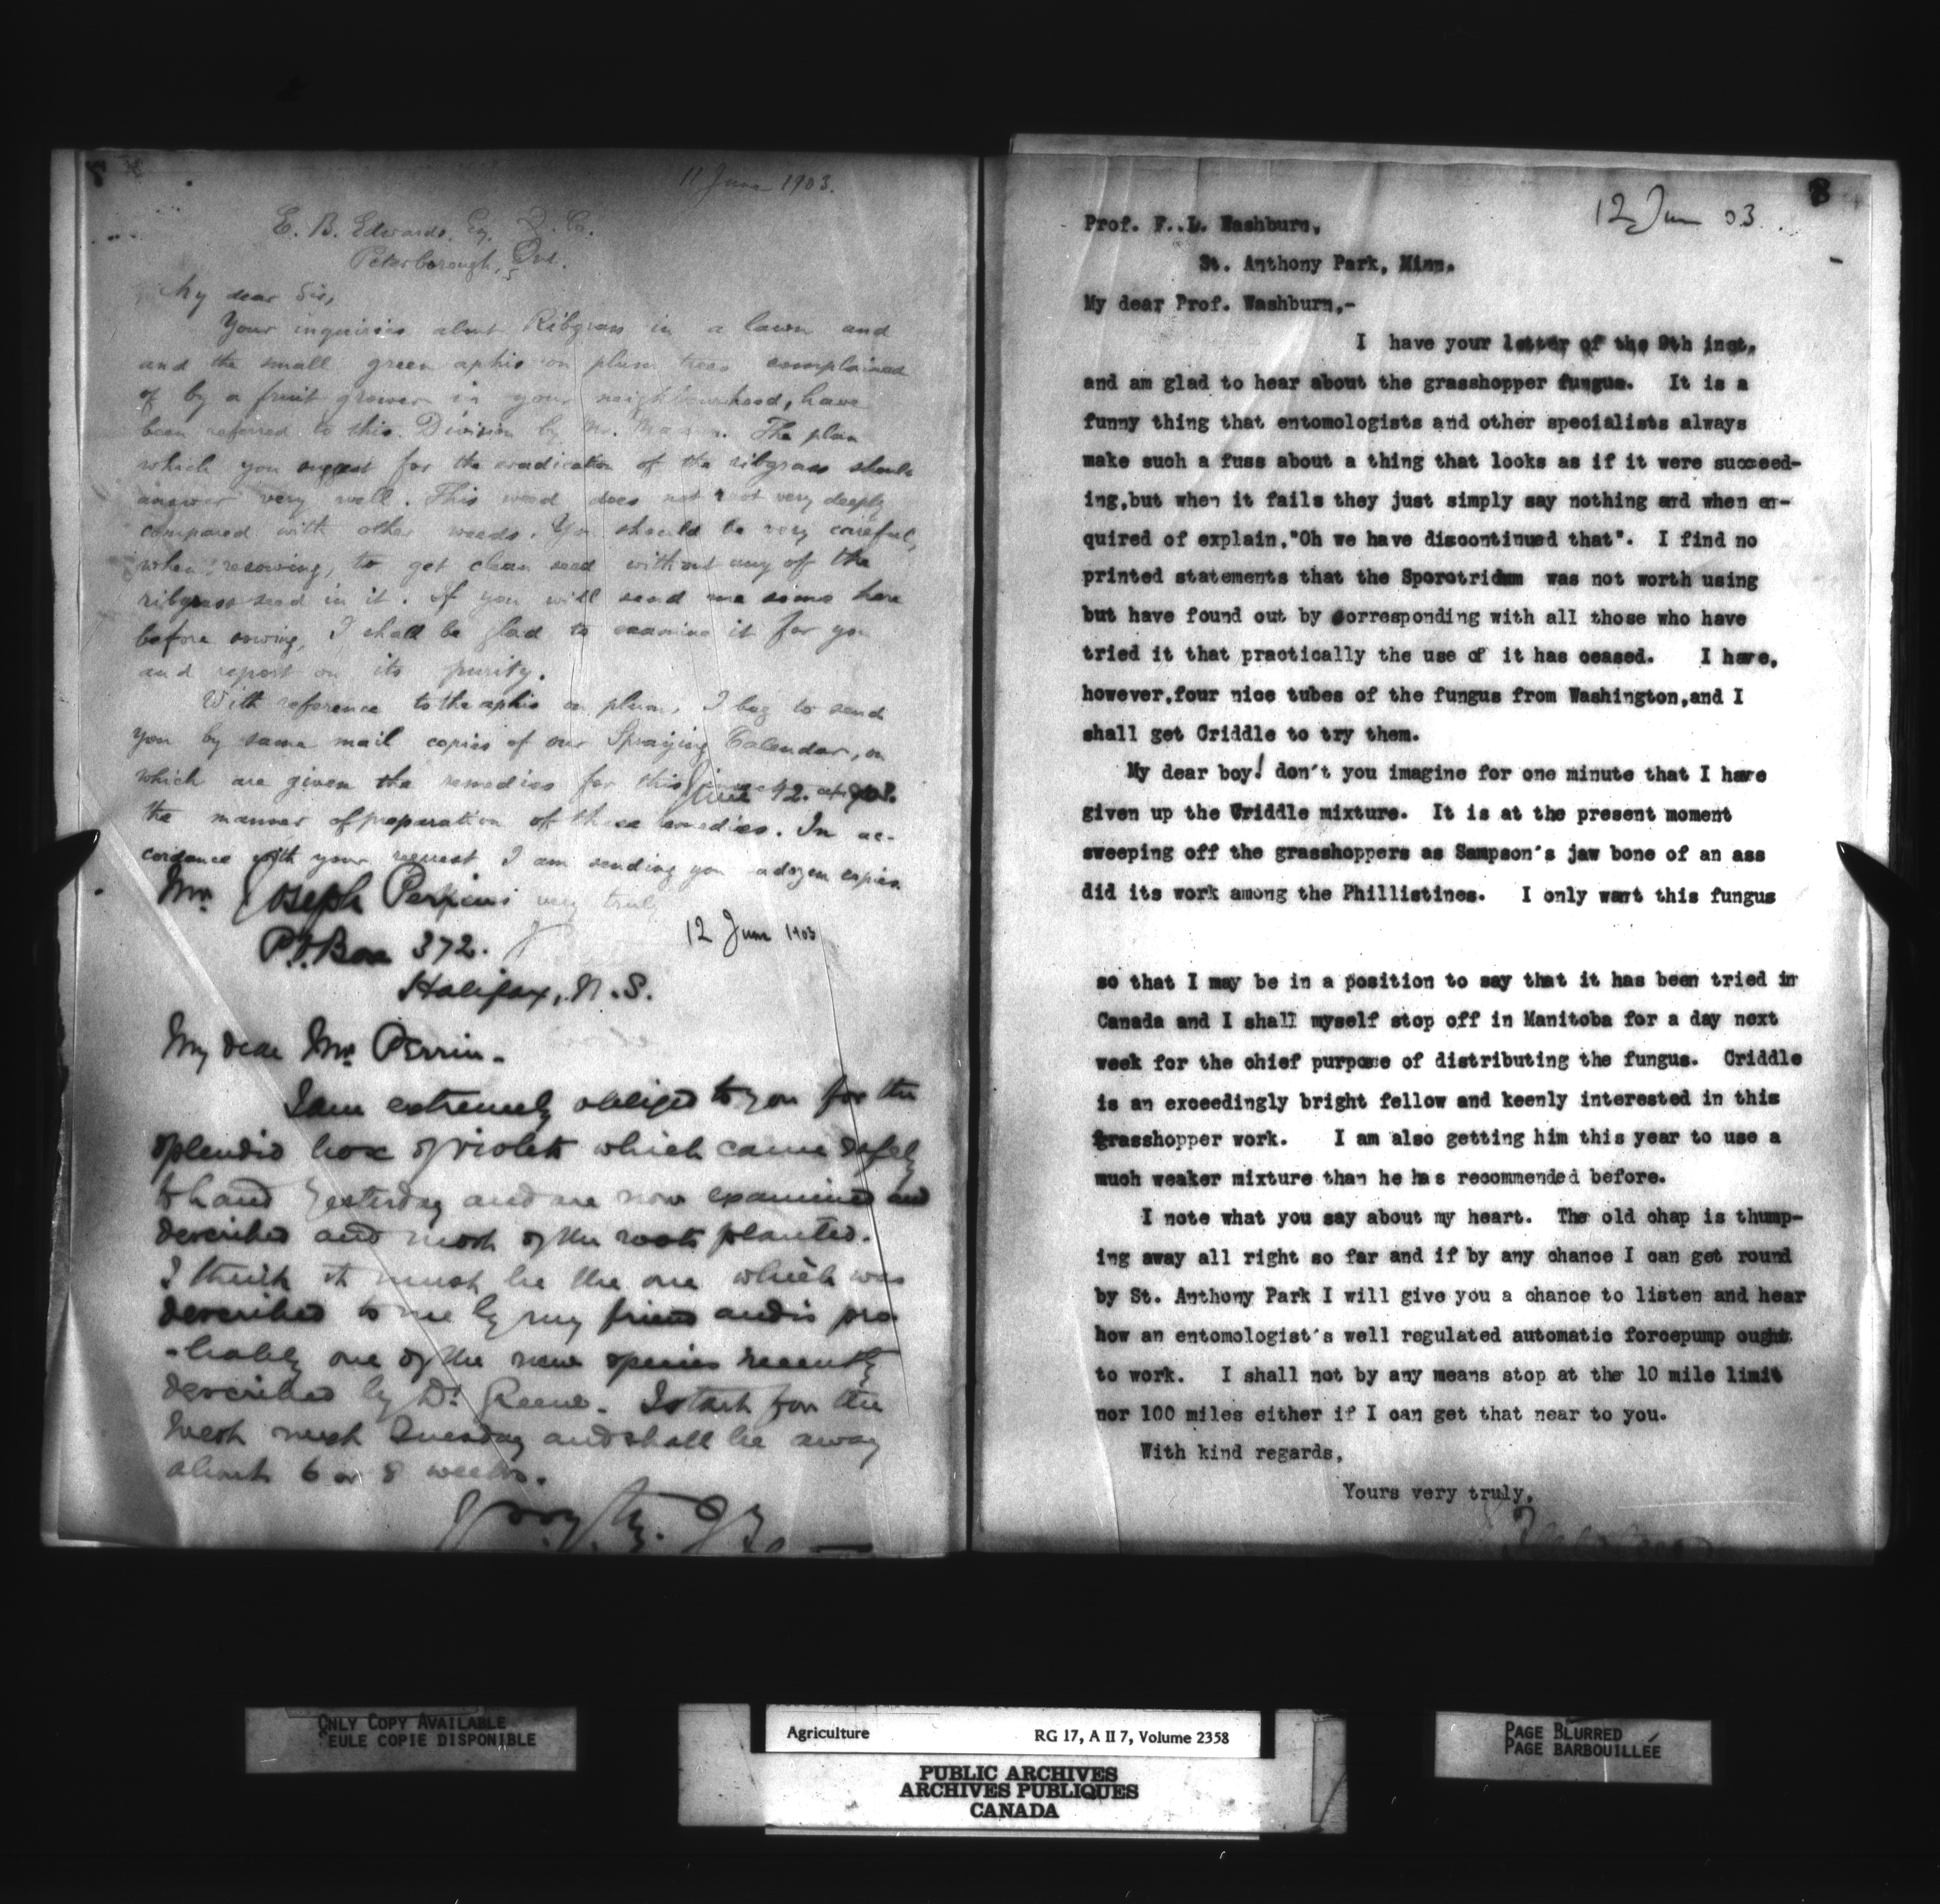 11 June 1903.
E. B. Edwards, Esq.
Peterborough, Ont.
My dear Sir,
Your inquiries about Ribgrass in a lawn and
and the small green aphis on plum trees complained
of by a fruit grower in your neighbourhood, have
been referred to this Division by Mr. The plan
which you suggest for the eradication of the ribgrass should
answer very well. This weed does not root very deeply
compared with other weeds. You should be very careful,
when resowing, to get clean seed without any of the
ribgrass seed in it. If you will send me some here
before sowing, I shall be glad to examine it for you
and report on its purity.
With reference to the aphis on plum, I beg to send
you by same mail copies of our Spraying Calendar, on
which are given the remedies for this
the manner of preparation of these remedies. In ac-
cordance with your request I am sending you a dozen copies
very truly
Mr Joseph
12 June 1903
P.O. Box 372.
Halifax, N.S.
My dear Mr. Perrin-
I am extremely obliged to you for the
splendid box of violets which came safely
to hand yesterday and are now examined and
described and most of the roots planted.
I think it must be the one which was
described to me by my friend and is pro
-bably one of the new species recently
described by Dr Greene. I start for the
West next Tuesday and shall be away
about 6 or 8 weeks.
8
12 Jun 03.
Prof. F..L. Washburn,
St. Anthony Park, Minn.
My dear Prof. Washburn,-
I have your letter of the 9th inst,
and am glad to hear about the grasshopper fungus. It is a
funny thing that entomologists and other specialists always
make such a fuss about a thing that looks as if it were succeed-
ing,but when it fails they just simply say nothing and when en-
quired of explain,"Oh we have discontinued that". I find no
printed statements that the Sporotridum was not worth using
but have found out by corresponding with all those who have
tried it that practically the use of it has ceased. I have,
however,four nice tubes of the fungus from Washington,and I
shall get Criddle to try them.
My dear boy! don't you imagine for one minute that I have
given up the Criddle mixture. It is at the present moment
sweeping off the grasshoppers as Sampson's jaw bone of an ass
did its work among the Phillistines. I only want this fungus
so that I may be in a position to say that it has been tried in
Canada and I shall myself stop off in Manitoba for a day next
week for the chief purpose of distributing the fungus. Criddle
is an exceedingly bright fellow and keenly interested in this
grasshopper work. I am also getting him this year to use a
much weaker mixture than he has recommended before.
I note what you say about my heart. The old chap is thump-
ing away all right so far and if by any chance I can get round
by St. Anthony Park I will give you a chance to listen and hear
how an entomologist's well regulated automatic forcepump ought
to work. I shall not by any means stop at the 10 mile limit
nor 100 miles either if I can get that near to you.
With kind regards,
Yours very truly,
ONLY COPY AVAILABLE
EULE COPIE DISPONIBLE
Agriculture RG 17, A II 7, Volume 2358
PUBLIC ARCHIVES
ARCHIVES PUBLIQUES
CANADA
PAGE BLURRED
PAGE BARBOUILLÉE